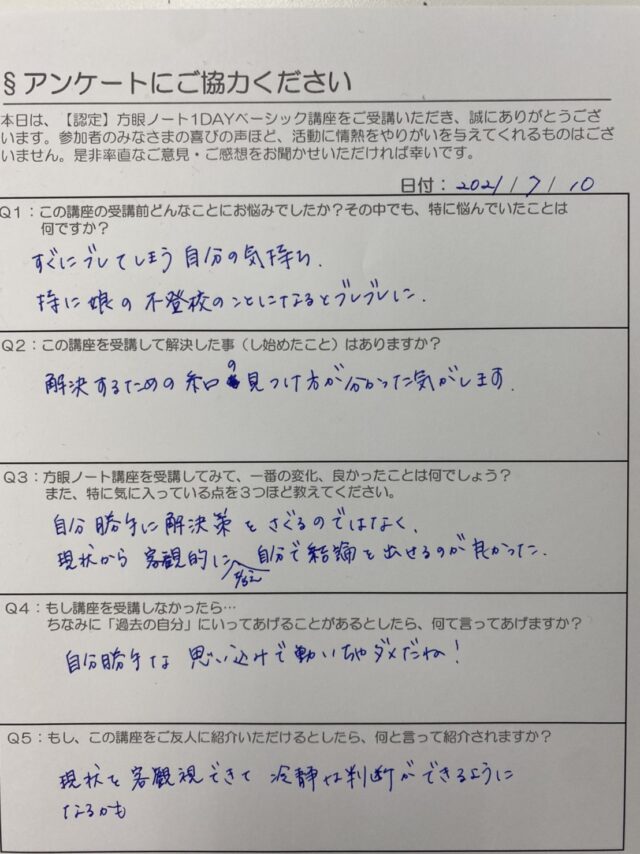 §アンケートにご協力ください
本日は、【認定】方眼ノート1DAYベーシック講座をご受講いただき、誠にありがとうござ
います。参加者のみなさまの喜びの声ほど、活動に情熱をやりがいを与えてくれるものはござ
いません。是非率直なご意見・ご感想をお聞かせいただければ幸いです。
日付：2021/7/10
Q1：この講座の受講前どんなことにお悩みでしたか？その中でも、特に悩んでいたことは
何ですか？
すぐにブレてしまう自分の気持ち.
特に娘の不登校のことになるとブレブレに.
Q2：この講座を受講して解決した事（し始めたこと）はありますか？
解決するための糸口の見つけ方が分かった気がします.
Q3：方眼ノート講座を受講してみて、一番の変化、良かったことは何でしょう？
また、特に気に入っている点を3つほど教えてください。
自分勝手に解決策をさぐるのではなく、
現状から客観的に自分で結論を出せるのが良かった.
Q4：もし講座を受講しなかったら…
ちなみに「過去の自分」にいってあげることがあるとしたら、何て言ってあげますか？
自分勝手な思い込みで動いちゃダメだね！
Q5：もし、この講座をご友人に紹介いただけるとしたら、何と言って紹介されますか？
現状を客観視できて冷静な判断ができるように
なるかも